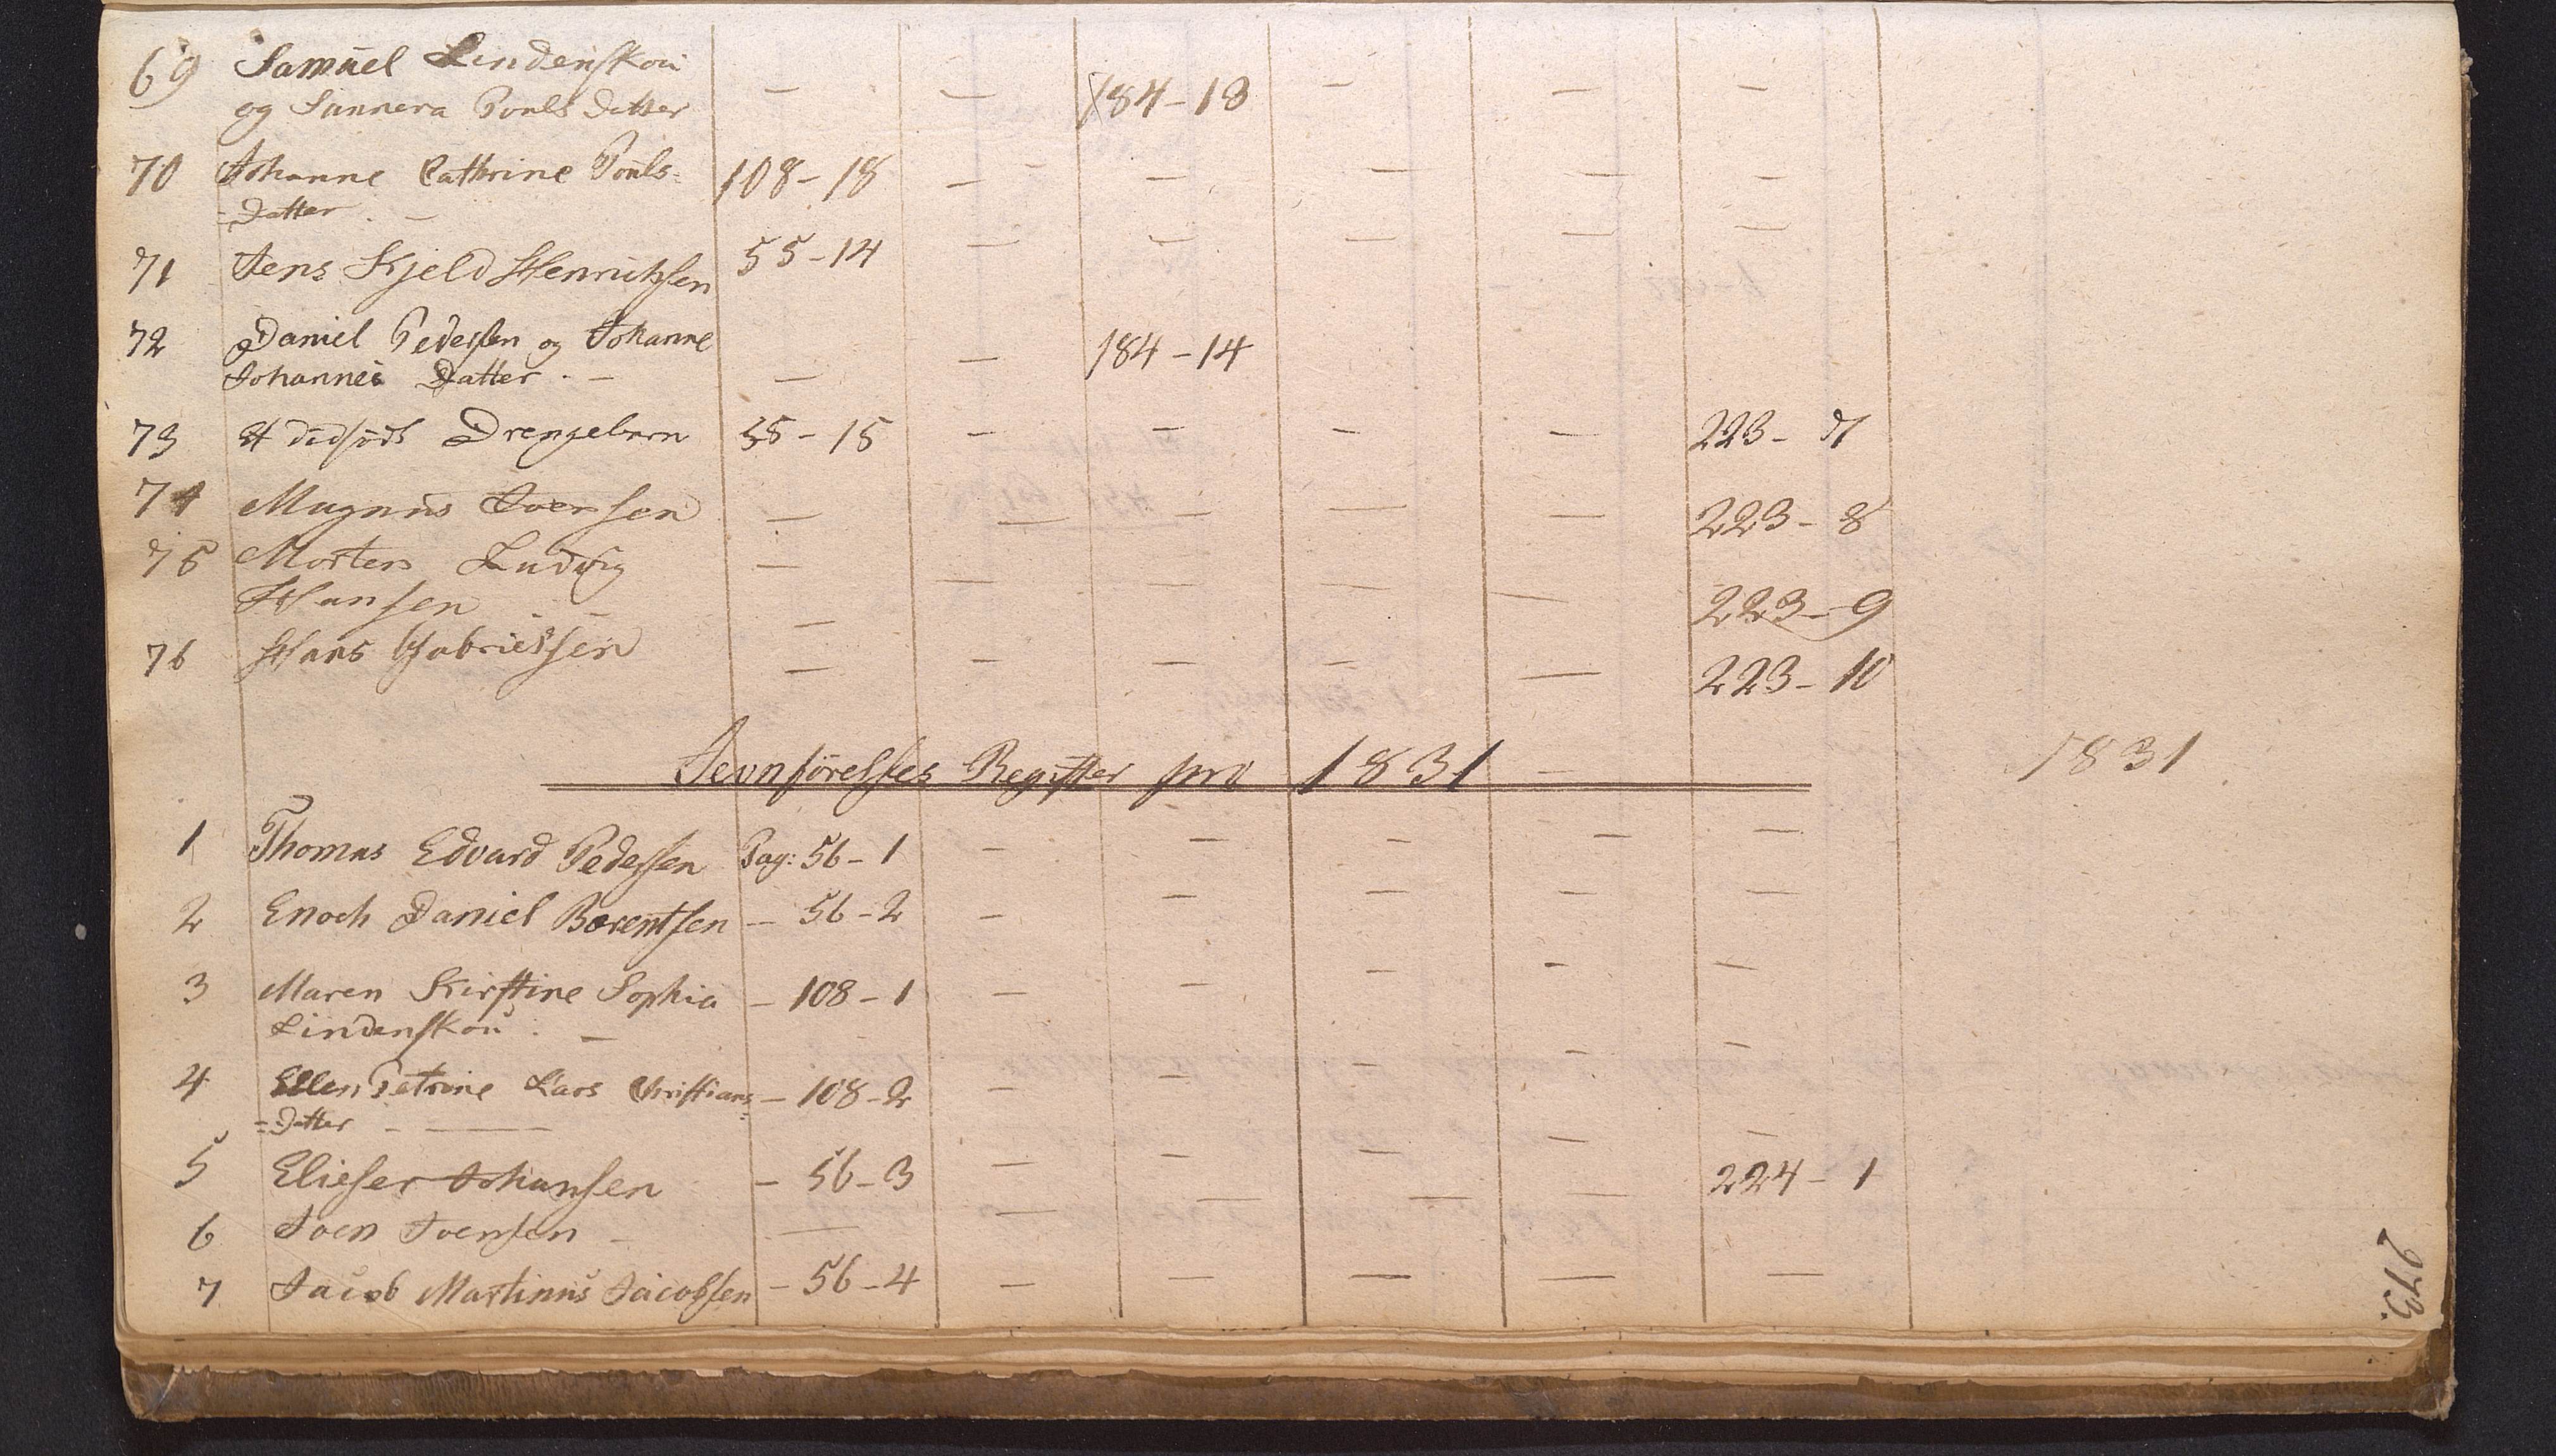 69 Samuel Lindenskou
og Sunnera Pouls Datter — — 184-13 — — —
70 Johanne Cathrine Pouls= 108-18 — — — — —
=Datter. —
71 Jens Kjeld Henriksen 55-14 — — — — —
72 Daniel Pedersen og Johanne
Johannes Datter. — — — 184-14
73 Et dødfødt Drengebarn 55-15 — — — — 223-7
74 Magnus Joensen — — — — — 223-8
75 Morten Ludvig
Hansen — — — — — — 223-9
76 Hans Gabrielsen — — — — — 223-10
Jevnførelses Register pro 1831 — 1831
1 Thomas Edvard Pedersen Pag: 56-1 — — — — —
2 Enoch Daniel Berentsen — 56-2 — — — — —
3 Maren Kirstine Sophia — 108-1 — — — — —
Lindenskou. —
4 Ellen Petrine Lars Christians= — 108-2 — — — — —
=Datter — —
5 Elieser Johansen — 56-3 — — — — 224-1
6 Joen Joensen — — — — — —
7 Jacob Martinus Jacobsen — 56-4 — — — — —
273.